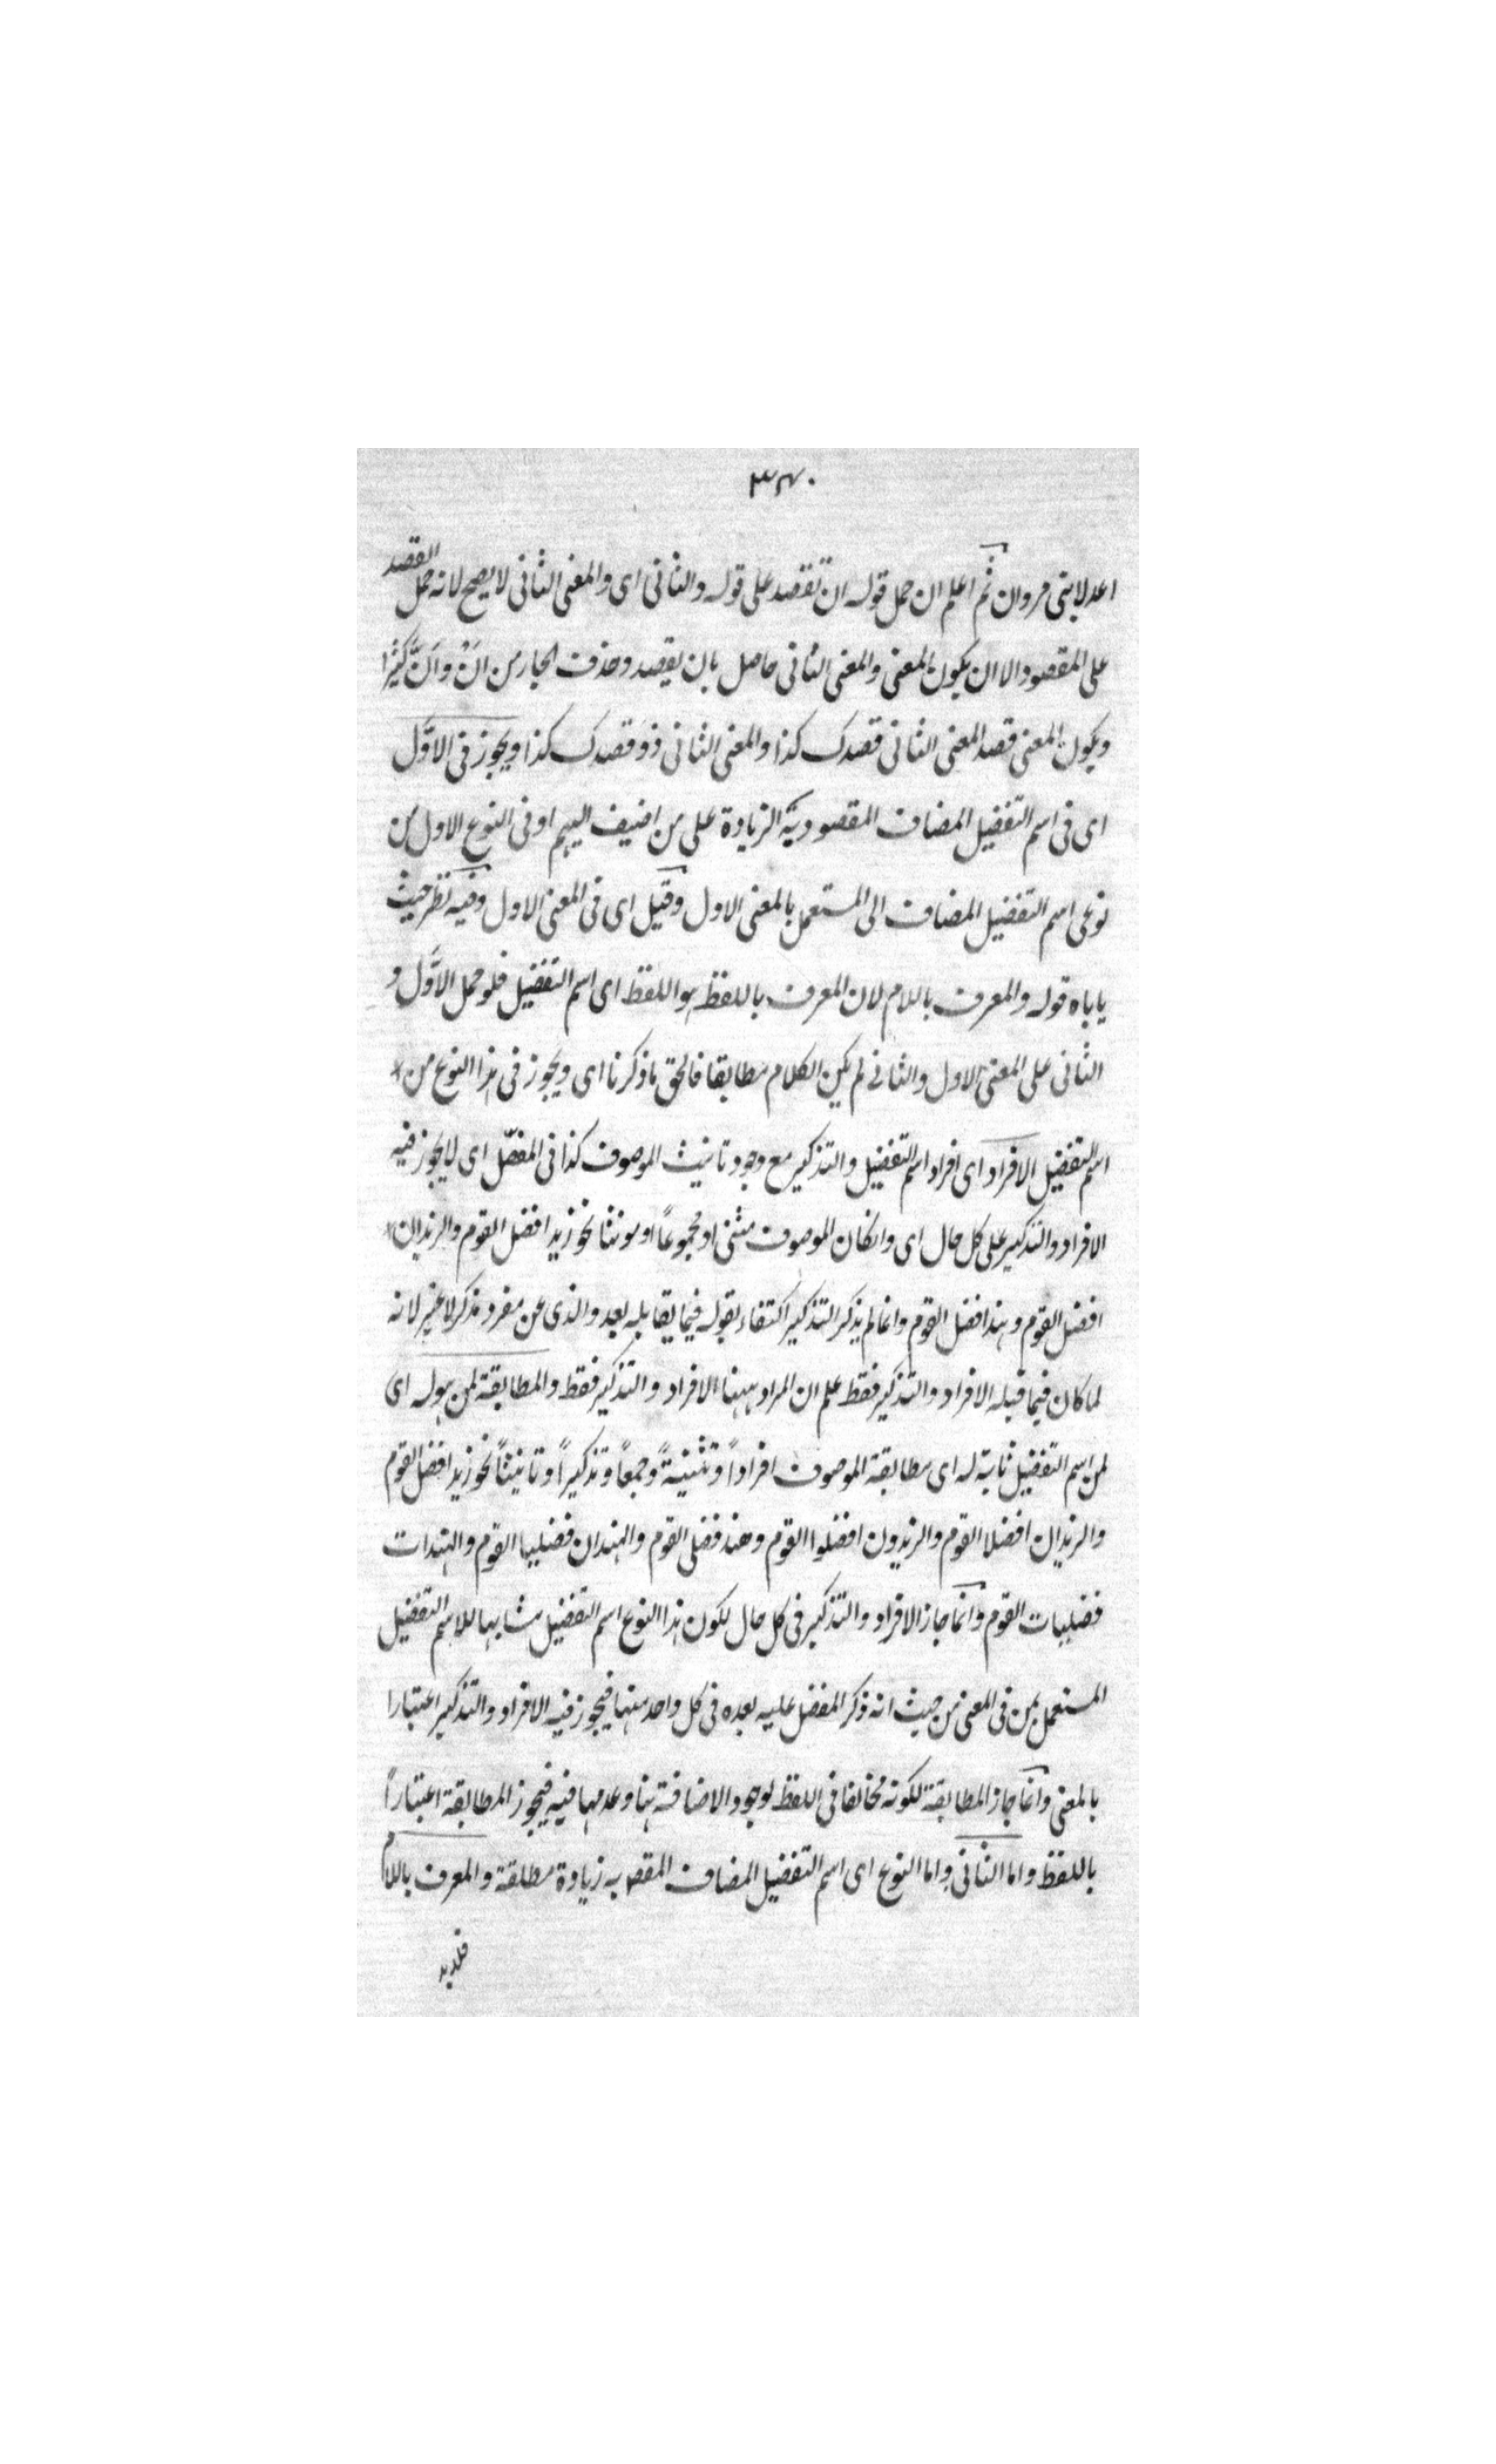 ٣٤٠
اعدلا بنى مروان ثم اعلم ان حمل قوله ان تقصد على قوله والثانى اى والمعنى الثانى لا يصح لانه حمل القصد
على المقصود الا ان يكون المعنى والمعنى الثانى حاصل بان يقصد وحذف الجار من انْ وانَّ كثيرا
ويكون المعنى قصد المعنى الثانى قصدك كذا والمعنى الثانى ذو قصدك كذا ويجوز فى الاوّل
اى فى اسم التفضيل المضاف المقصود به الزيادة على من اضيف اليهم او فى النوع الاول من
نوعى اسم التفضيل المضاف الى المستعمل بالمعنى الاول وقيل اى فى المعنى الاول وفيه نظر حيث
ياباه قوله والمعرف باللام لان المعرف باللفظ هو اللفظ اى اسم التفضيل فلو حمل الاوّل و
الثانى على المعنى الاول والثانى لم يكن الكلام مطابقا فالحق ما ذكرنا اى ويجوز فى هذا النوع من
اسم التفضيل الافراد اى افراد اسم التفضيل والتذكير مع وجود تانيث الموصوف كذا فى المفصّل اى لا يجوز فيه
الافراد والتذكير على كل حال اى وان كان الموصوف مثنى او مجموعاً او مونثا نحو زيد افضل القوم والزيدان
افضل القوم وهند افضل القوم وانما لم يذكر التذكير اكتفاء بقوله فيما يقابله بعد والذى عن مفرد مذكر لا غير لانه
لما كان فيما قبله الافراد والتذكير فقط علم ان المراد ههنا الافراد والتذكير فقط والمطابقة لمن هو له اى
لمن اسم التفضيل ثابت له اى مطابقة الموصوف افراداً وتثنيةً وجمعاً وتذكيراً وتانيثاً نحو زيد افضل القوم
والزيدان افضلا القوم والزيدون افضلوا القوم وهند فضلى القوم والهندان فضليا القوم والهندات
فضليات القوم وانما جاز الافراد والتذكير فى كل حال لكون هذا النوع اسم التفضيل مشابها للاسم التفضيل
المستعمل بمن فى المعنى من حيث انه ذكر المفضل عليه بعده فى كل واحد منهما فيجوز فيه الافراد والتذكير اعتبارا
بالمعنى وانما جاز المطابقة لكونه مخالفا فى اللفظ لوجود الاضافة هنا وعدمها فيه فيجوز المطابقة اعتباراً
باللفظ واما الثانى واما النوع اى اسم التفضيل المضاف المقصد به زيادة مطلقة والمعرف باللام
فلا بد